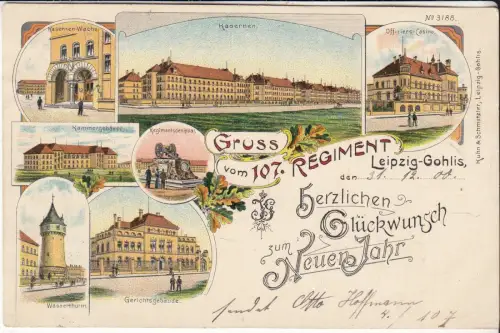 Kasernen-Wache
Kasernen.
Offiziers-Casino
No 3188.
Kammergebäude.
Regimentsdenkmal
Gruss
vom 107. REGIMENT
Leipzig-Gohlis,
den 31. 12. 00.
Herzlichen
Glückwunsch
zum
Neuen Jahr
Wasserthurm.
Gerichtsgebäude.
sendet Otto Hoffmann
4. / 107
Kuhn & Schmutzler, Leipzig-Gohlis.